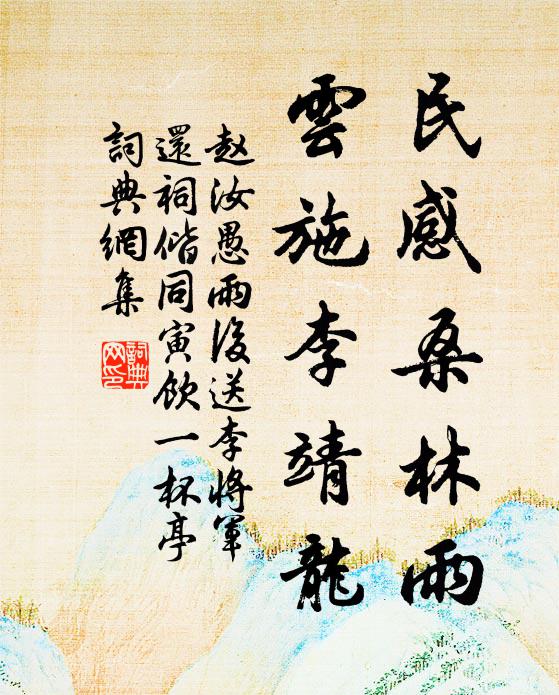 民感桑林雨
雲施李靖龍
赵汝愚雨後送李將軍
還祠偕同寅飲一杯亭
詞典網集
詞典
网印